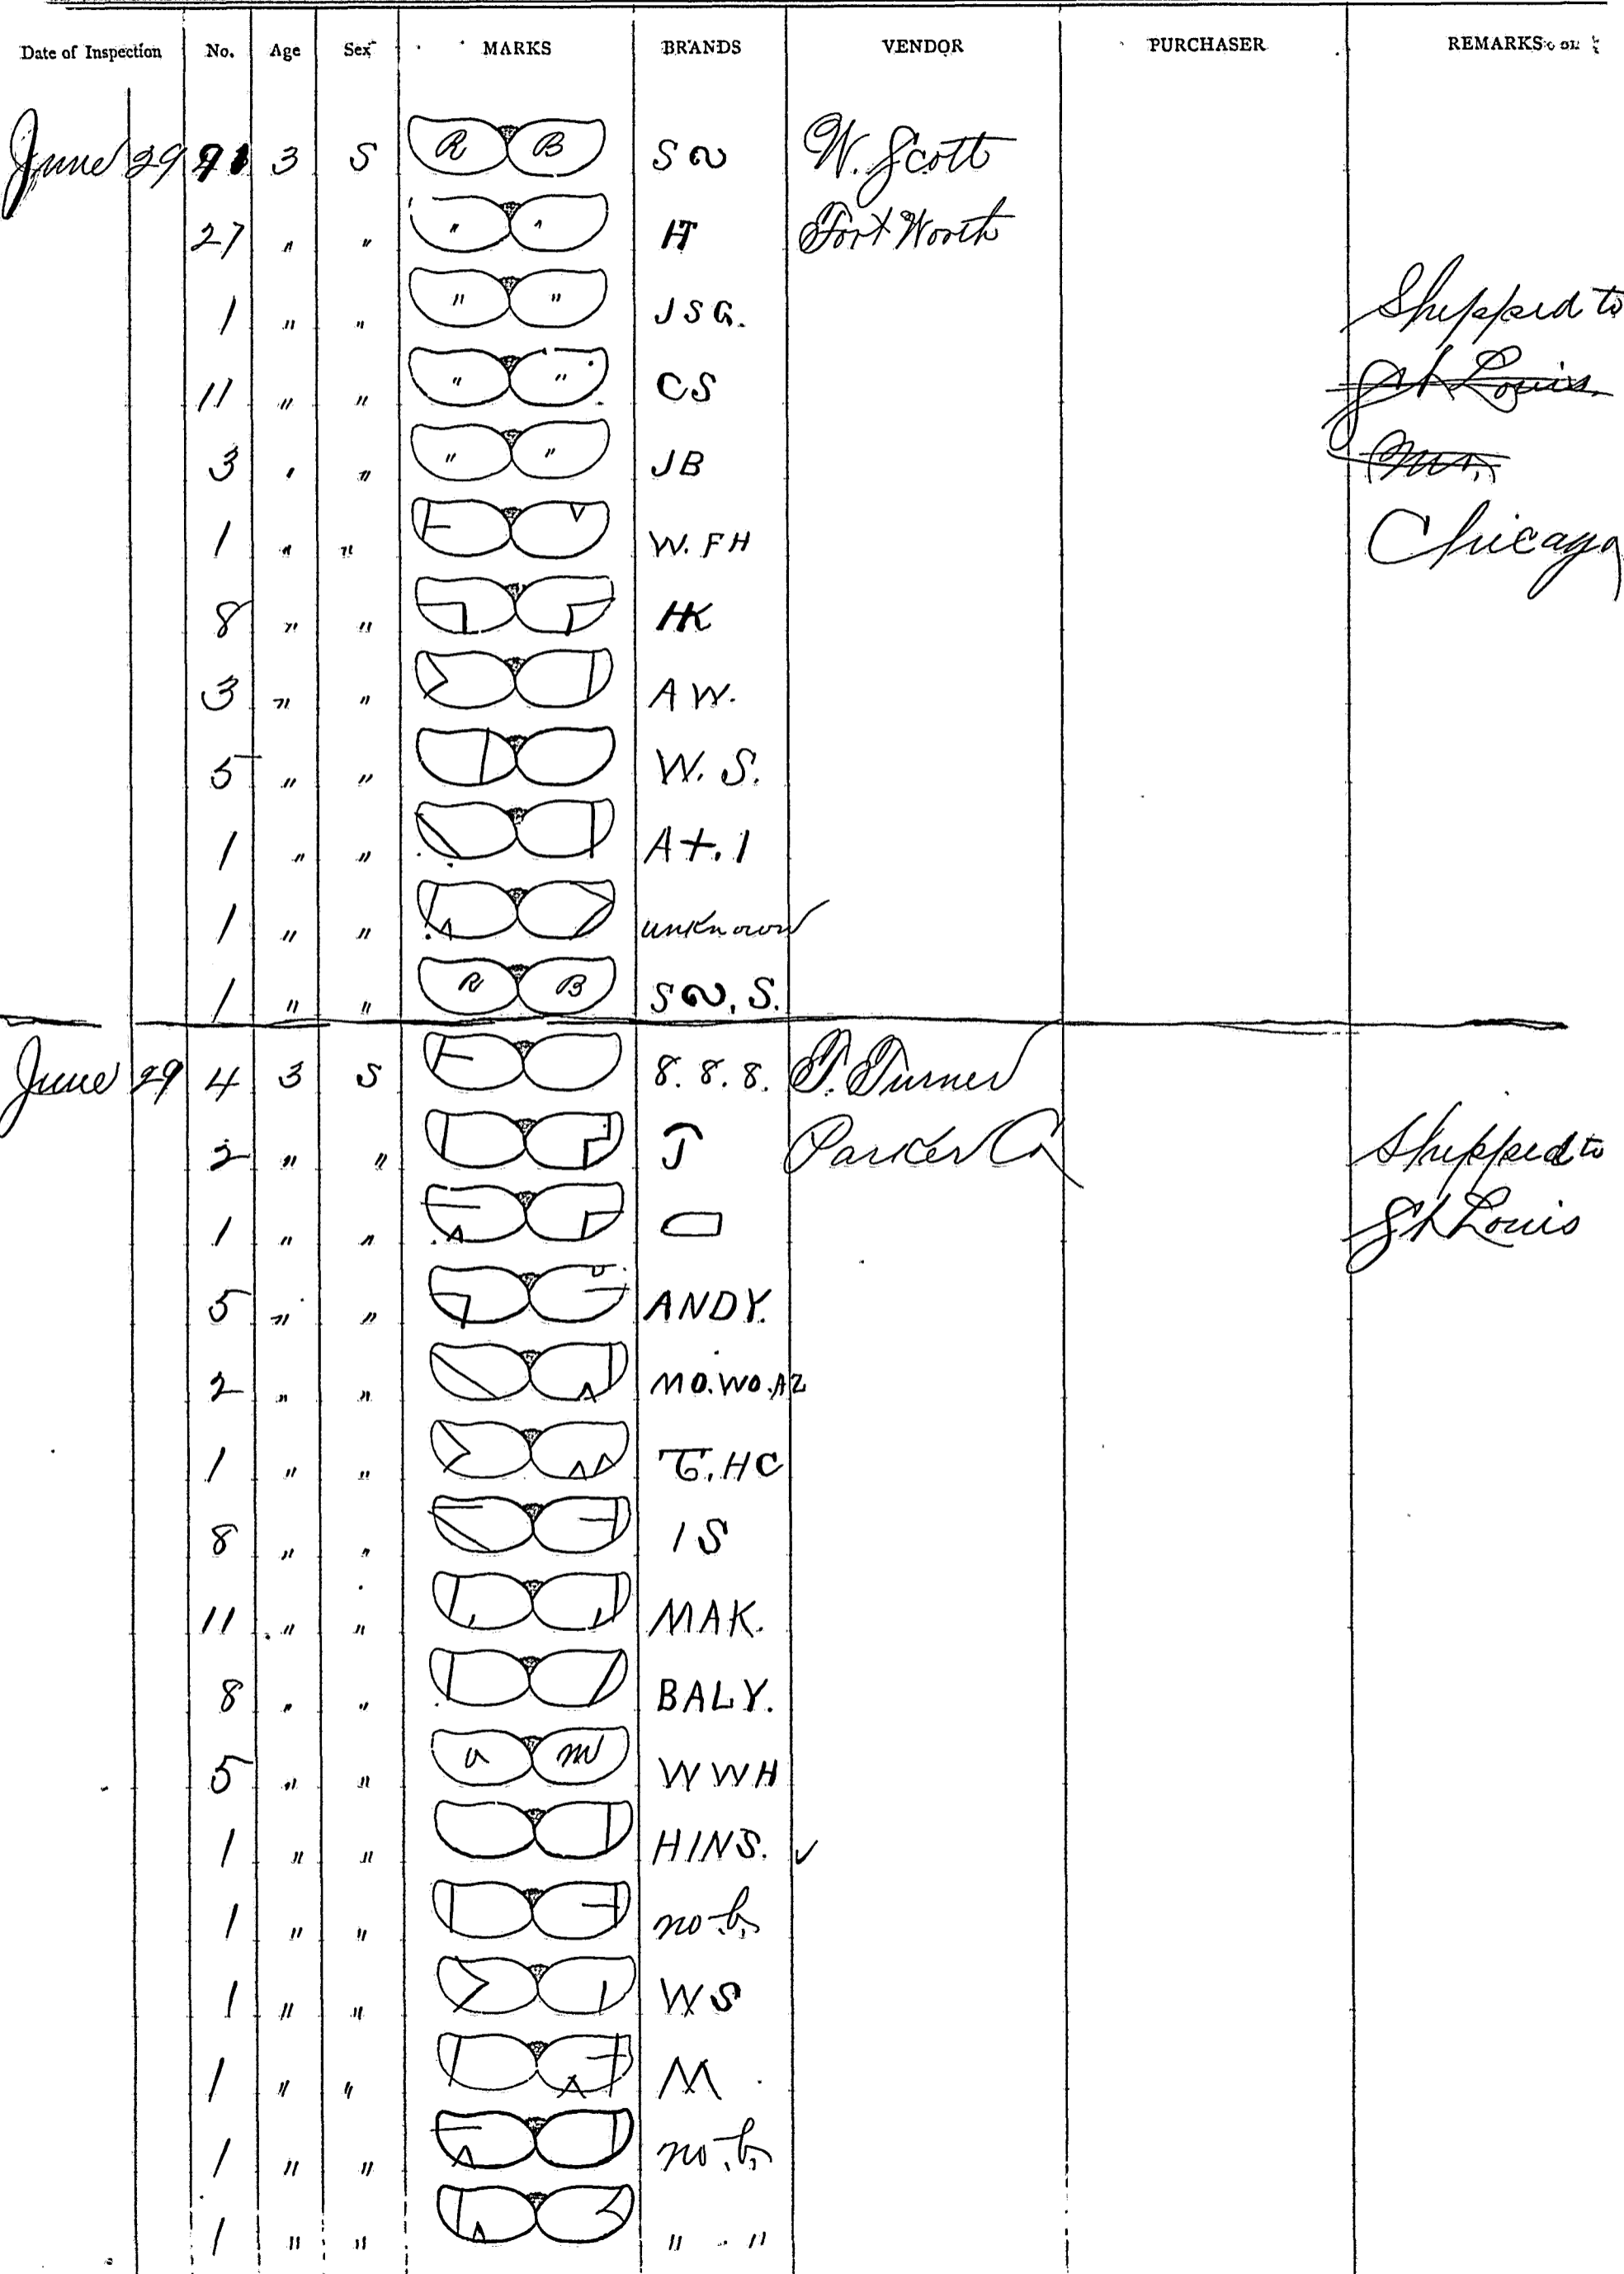 Date of Inspection No. Age Sex MARKS BRANDS VENDOR PURCHASER REMARKS
June 29 3 S R B S W. Scott
27 " " " " H Fort Worth
1 " " " " JSG. Shipped to
11 " " " " CS St Louis
3 " " " " JB Mo.
1 " " W. FH Chicago
8 " " HK
3 " " A W.
5 " " W. S.
1 " " A+. 1
1 " " unknown
1 " " R B S , S.
June 29 4 3 S 8. 8. 8. T. Turner
2 " " J Parker Co Shipped to
1 " " St Louis
5 " " ANDY.
2 " " MO. WO. A2
1 " " HC
8 " " 1 S
11 " " MAK.
8 " " BALY.
5 " " a m WWH
1 " " HINS. ✓
1 " " no b.
1 " " WS
1 " " M
1 " " no b.
1 " " " "